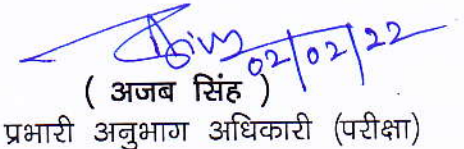 02/02/22
( अजब सिंह )
प्रभारी अनुभाग अधिकारी (परीक्षा)